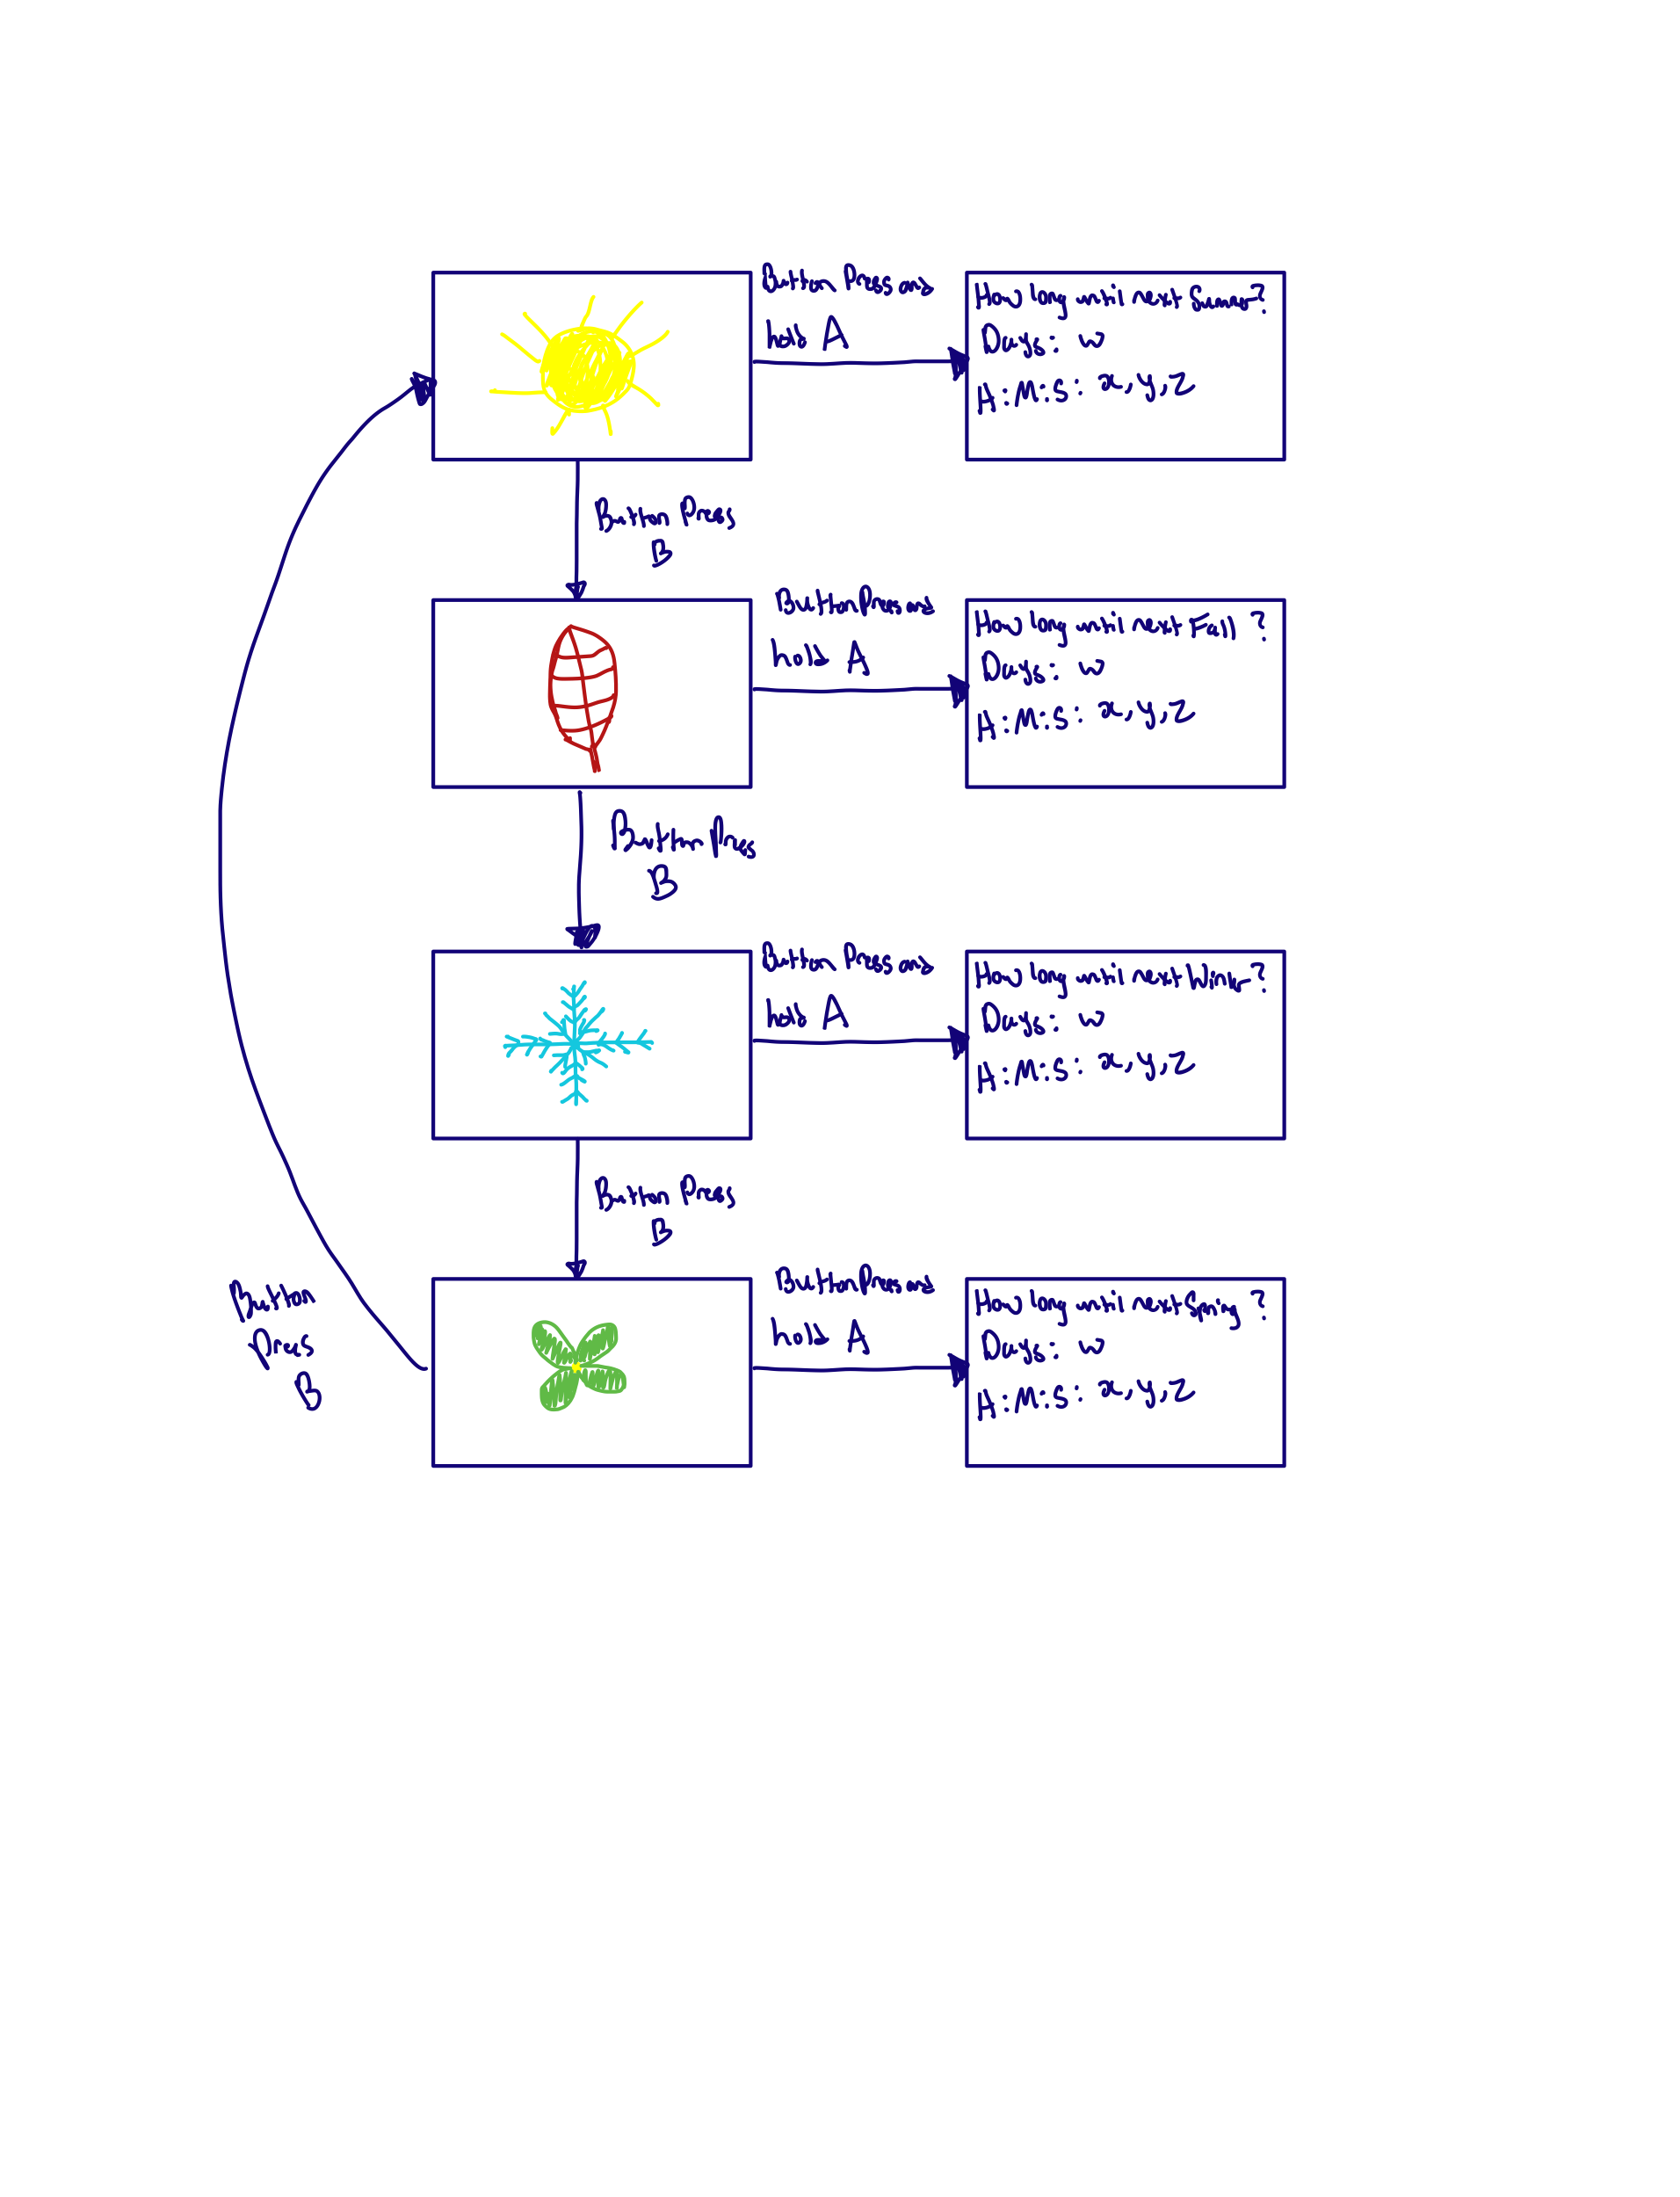 Button Press and
hold A
How long until next Summer?
Days: w
H:M:S: x,y,z
Button Press
B
Button Press and
hold A
How long until next Fall?
Days: w
H:M:S: x,y,z
Button Press
B
Button Press and
hold A
How long until next Winter?
Days: w
H:M:S: x,y,z
Button Press
B
Button Press and
hold A
How long until next Spring?
Days: w
H:M:S: x,y,z
Button
Press
B